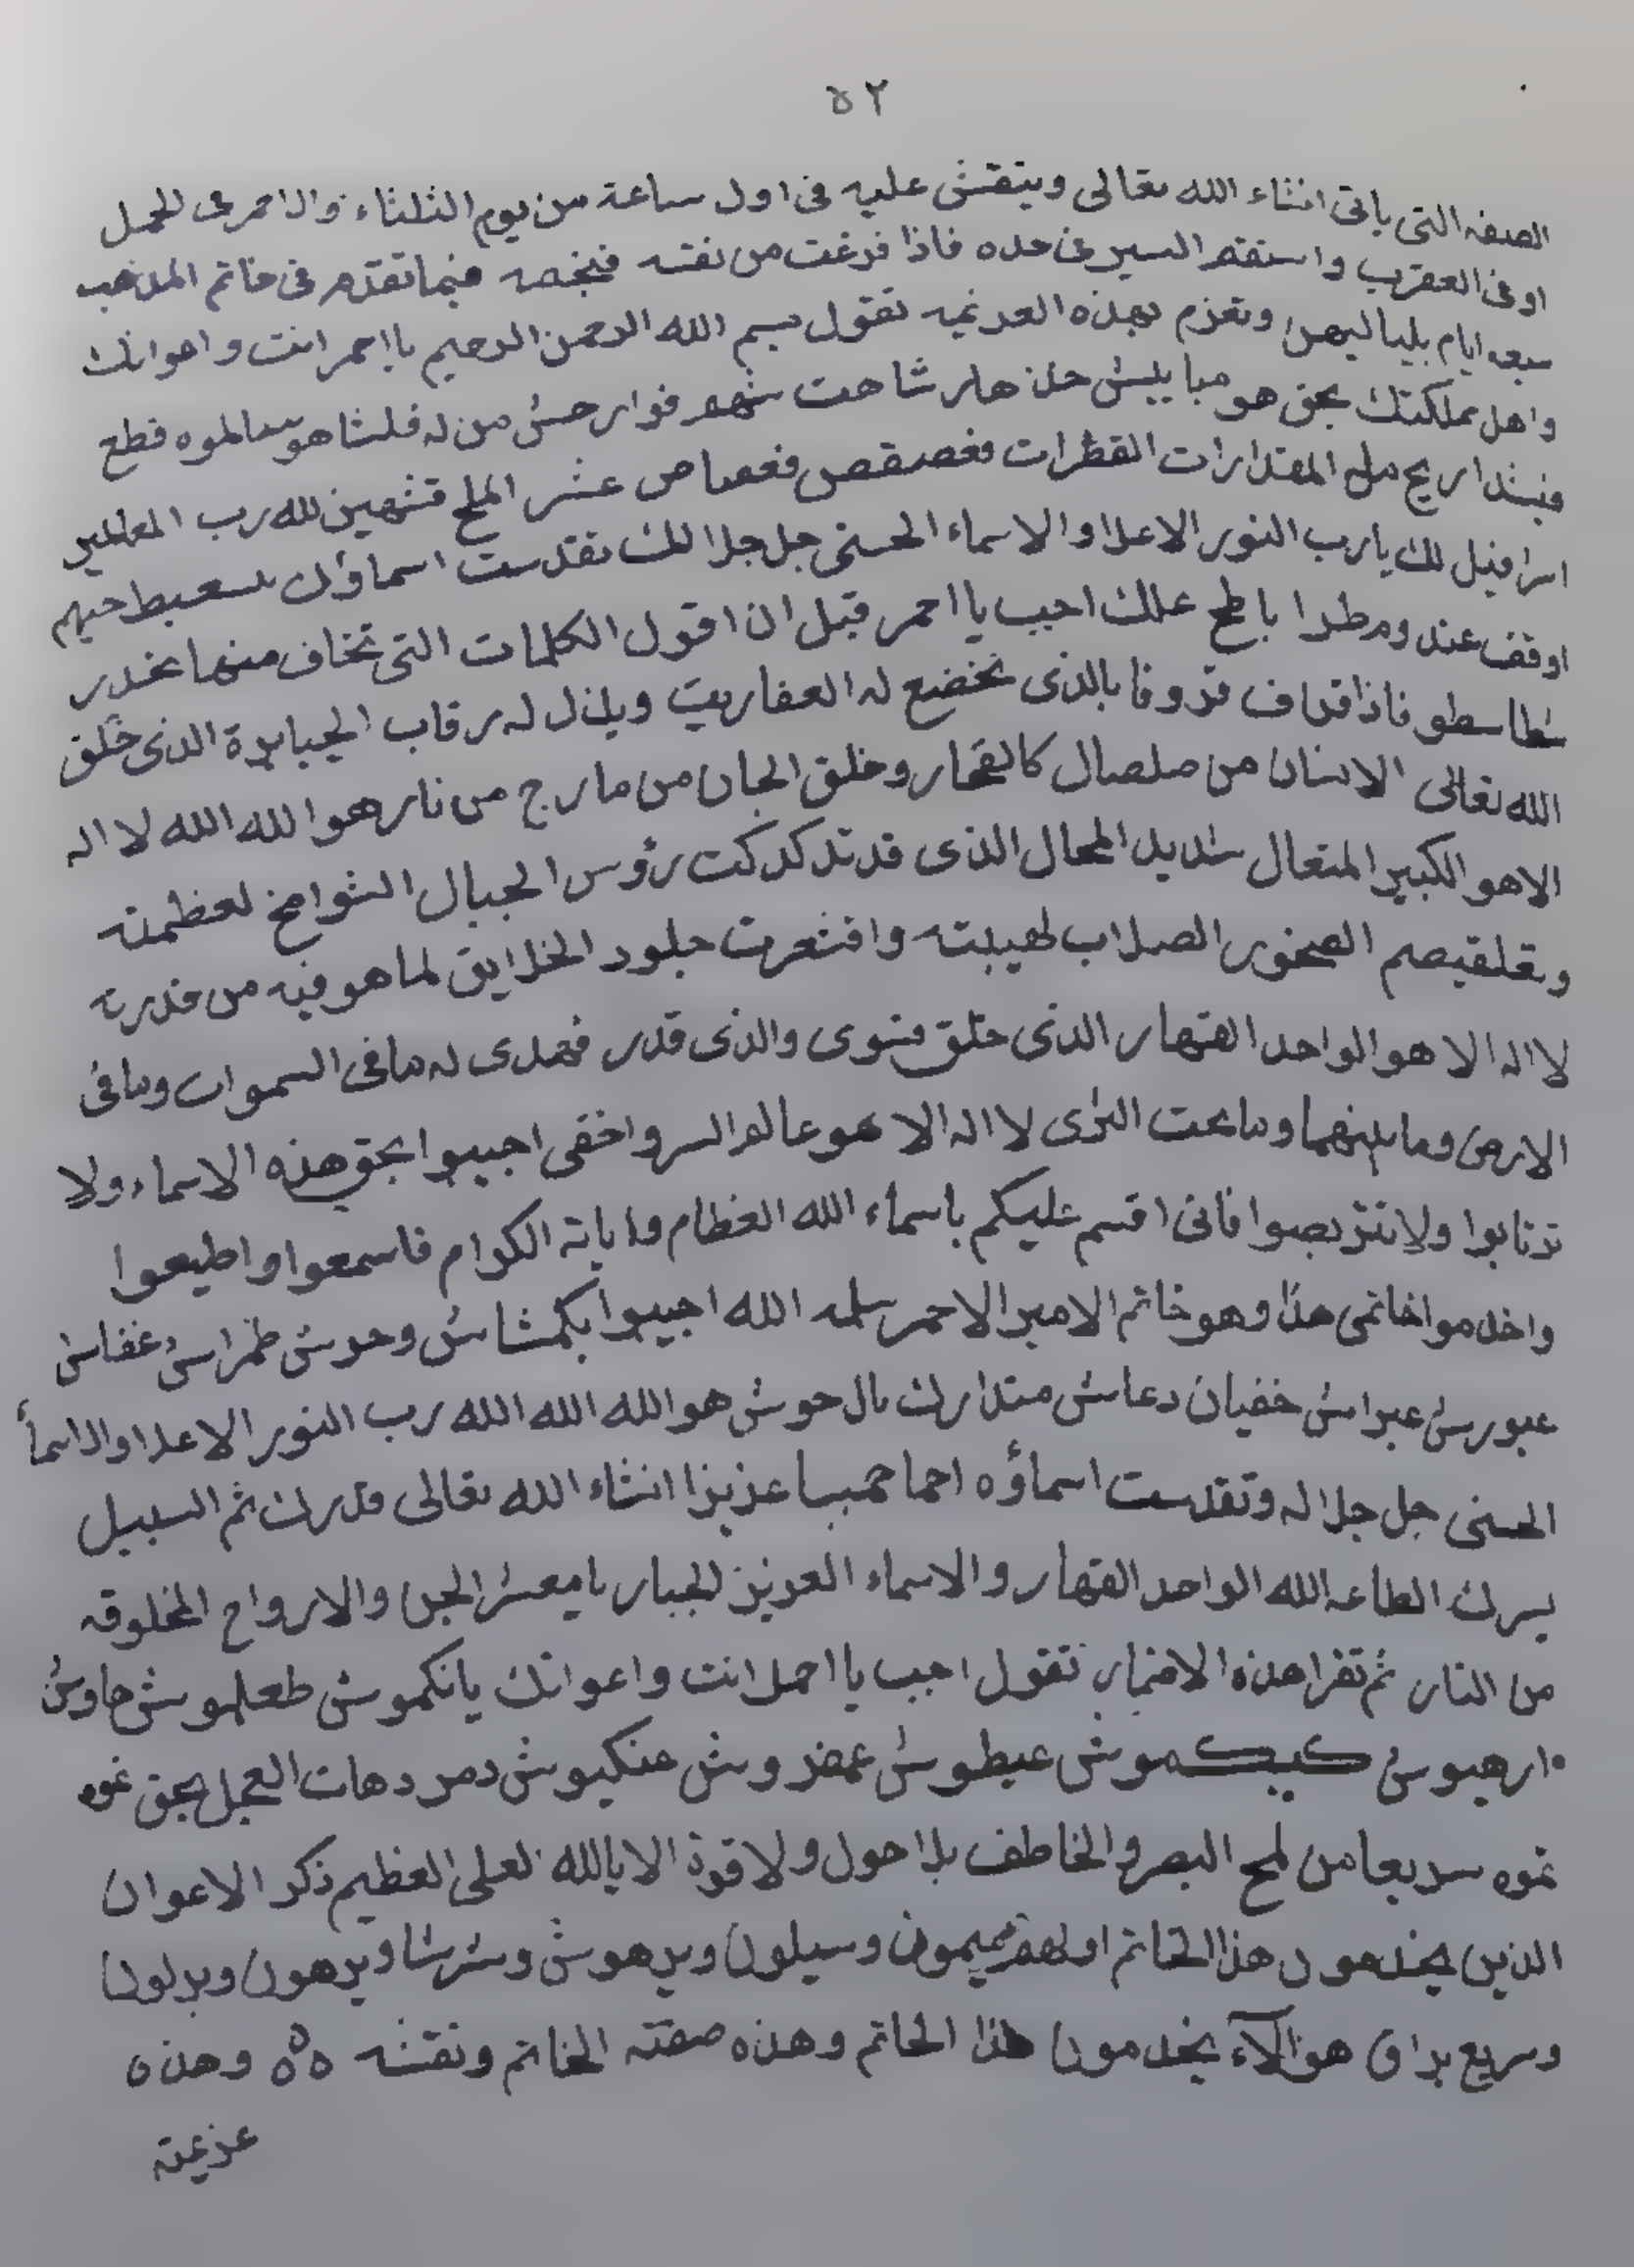 ٥٢
الصفه التى ياتى انشاء الله تعالى وينقش عليه فى اول ساعة من يوم الثلثاء والاحمر فى الحمل
او فى العقرب واستقم السير فى حده فاذا فرغت من نقشه فبخصه فيما تقدم فى خاتم المذهب
سبعه ايام بلياليهن وتعزم بهذه العزيمه تقول بسم الله الرحمن الرحيم يا احمر انت واعوانك
واهل مملكتك بحق هو شاهت من له قطع
المقدارات القطرات عشر الملح لله رب العالمين
اسرافيل لك يارب النور الاعلا والاسماء الحسنى جل جلالك تقدست اسماؤك
اوقف عند علك اجب يا احمر قبل ان اقول الكلمات التى تخاف منها
فاذا بالذى تخضع له العفاريت ويذل له رقاب الجبابرة الذى خلق
الله تعالى الانسان من صلصال كالفخار وخلق الجان من مارج من نار هو الله الله لا اله
الا هو الكبير المتعال شديد المحال الذى قد تدكدكت رؤس الجبال الشوامخ لعظمته
الصخور الصلاب لهيبته واقشعرت جلود الخلايق لما هو فيه من قدرته
لا اله الا هو الواحد القهار الذى خلق فسوى والذى قدر فهدى له ما فى السموات وما فى
الارض وما بينهما وما تحت الثرى لا اله الا هو عالم السر واخفى اجيبوا بحق هذه الاسماء ولا
ترتابوا ولا تتربصوا فانى اقسم عليكم باسماء الله العظام واياته الكرام فاسمعوا واطيعوا
واخدموا خاتمى هذا وهو خاتم الامير الاحمر سلمه الله اجيبوا بكمشاش وحوش طمراش غفاش
عبورش عبراش خفيان دعاش متدارك بال حوش هو الله الله الله رب النور الاعلا والاسمأ
الحسنى جل جلاله وتقدست اسماؤه عزيزا انشاء الله تعالى قدرك ثم السبيل
يسرك الطاعه الله الواحد القهار والاسماء العزيز الجبار يا معشر الجن والارواح المخلوقه
من النار ثم تقرا هذه الاضمار تقول اجب يا احمل انت واعوانك يانكموش طعلموش حاوش
ارهيوش كيكموش عيطوش عمفروش عنكيوش دمردهات العجل بحق نموه
نموه سريعا من لمح البصر والخاطف بلا حول ولا قوة الا بالله العلى العظيم ذكر الاعوان
الذين يخدمون هذا الخاتم اولهم ميمون وسيلون وبرهوش وشرشا وبرهون وبرلون
وسريع براق هوالآء يخدمون هذا الخاتم وهذه صفته الخاتم ونقشه ه ه ه وهذه
عزيمته